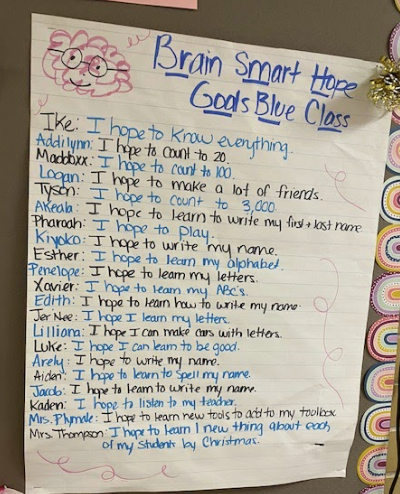 Brain Smart Hope
Goals Blue Class
Ike: I hope to know everything.
Addilynn: I hope to count to 20.
Maddoxx: I hope to count to 100.
Logan: I hope to make a lot of friends.
Tyson: I hope to count to 3,000.
Akeala: I hope to learn to write my first + last name
Pharoah: I hope to play.
Kiyoko: I hope to write my name.
Esther: I hope to learn my alphabet.
Penelope: I hope to learn my letters.
Xavier: I hope to learn my ABC's.
Edith: I hope to learn how to write my name.
Jer'Nee: I hope I learn my letters.
Lilliana: I hope I can make cars with letters.
Luke: I hope I can learn to be good.
Arely: I hope to write my name.
Aiden: I hope to learn to spell my name.
Jacob: I hope to learn to write my name.
Kaden: I hope to listen to my teacher.
Mrs. Plymale: I hope to learn new tools to add to my toolbox
Mrs. Thompson: I hope to learn 1 new thing about each
of my students by Christmas.